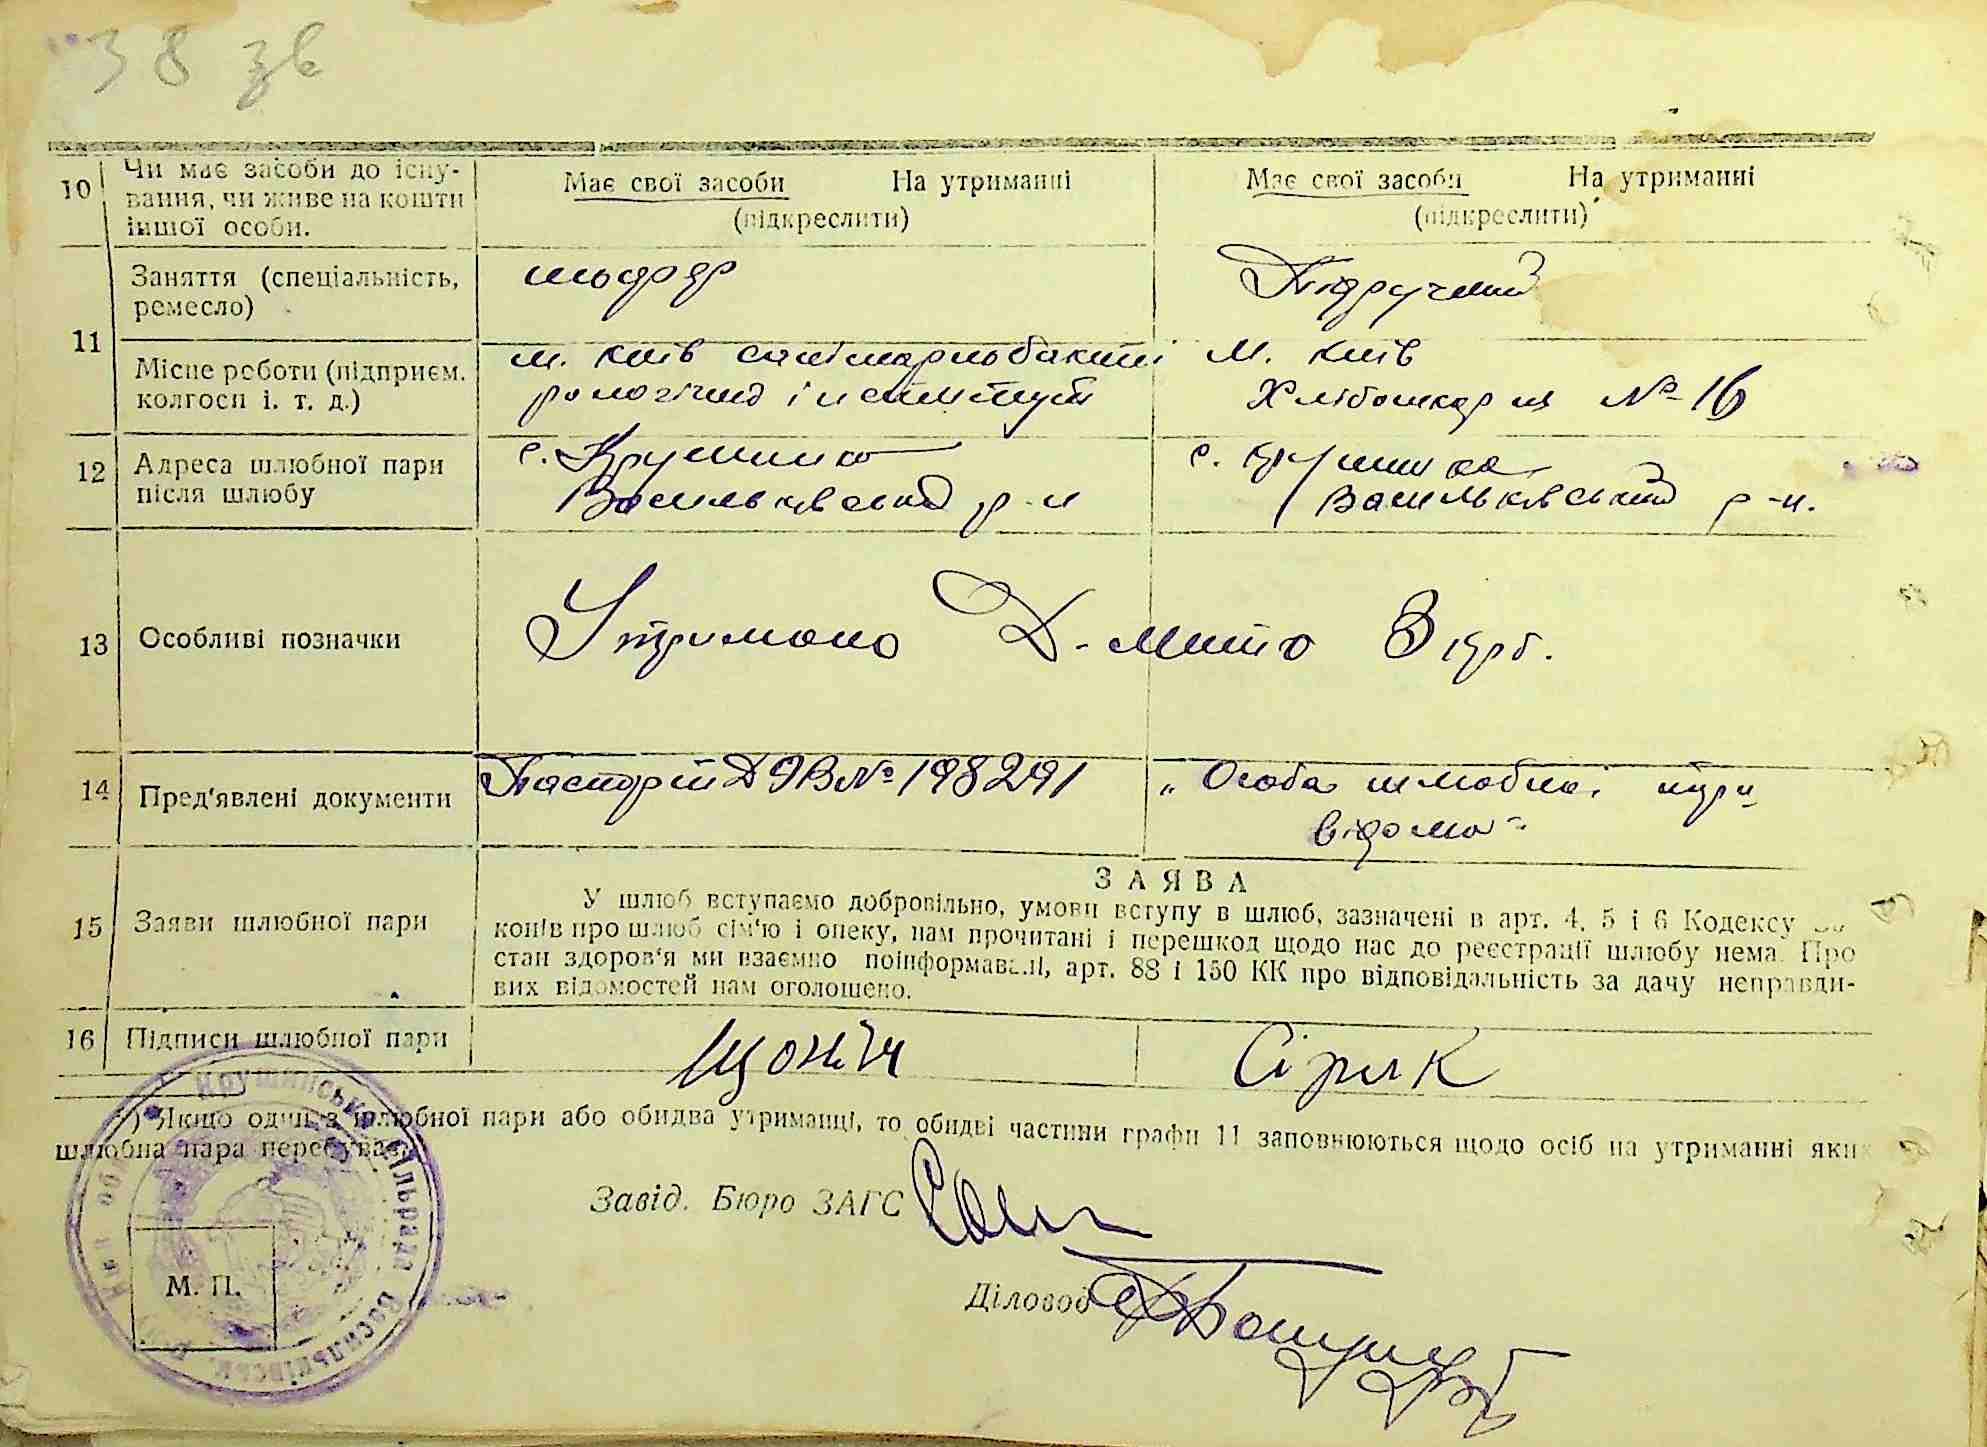 38 зв
10 Чи має засоби до існу-
вання, чи живе на кошти
іншої особи.
Має свої засоби На утриманні
(підкреслити)
Має свої засоби На утриманні
(підкреслити)
11 Заняття (спеціальність,
ремесло)
шофер
Підручний
Місце роботи (підприєм.
колгосп і. т. д.)
м. Київ санітарнобакті
рологічний інститут
м. Київ
Хлібопекарня № 16
12 Адреса шлюбної пари
після шлюбу
с. Крушинка
Васильківський р-н
с. Крушинка
Васильківський р-н.
13 Особливі позначки
Утримано Д-мито 3 крб.
14 Пред'явлені документи
Паспорт № 198291
„ Особа шлюбної пари
відома "
15 Заяви шлюбної пари
ЗАЯВА
У шлюб вступаємо добровільно, умови вступу в шлюб, зазначені в арт. 4, 5 і 6 Кодексу За-
конів про шлюб сім'ю і опеку, нам прочитані і перешкод щодо нас до реєстрації шлюбу нема. Про
стан здоров'я ми взаємно поінформавані, арт. 88 і 150 КК про відповідальність за дачу неправди-
вих відомостей нам оголошено.
16 Підписи шлюбної пари
Сірик
*) Якщо один з шлюбної пари або обидва утриманці, то обидві частини графи 11 заповнюються щодо осіб на утриманні яких
шлюбна пара перебуває.
Завід. Бюро ЗАГС
Діловод
М. П.
Крушинська сільрада Васильківськ.